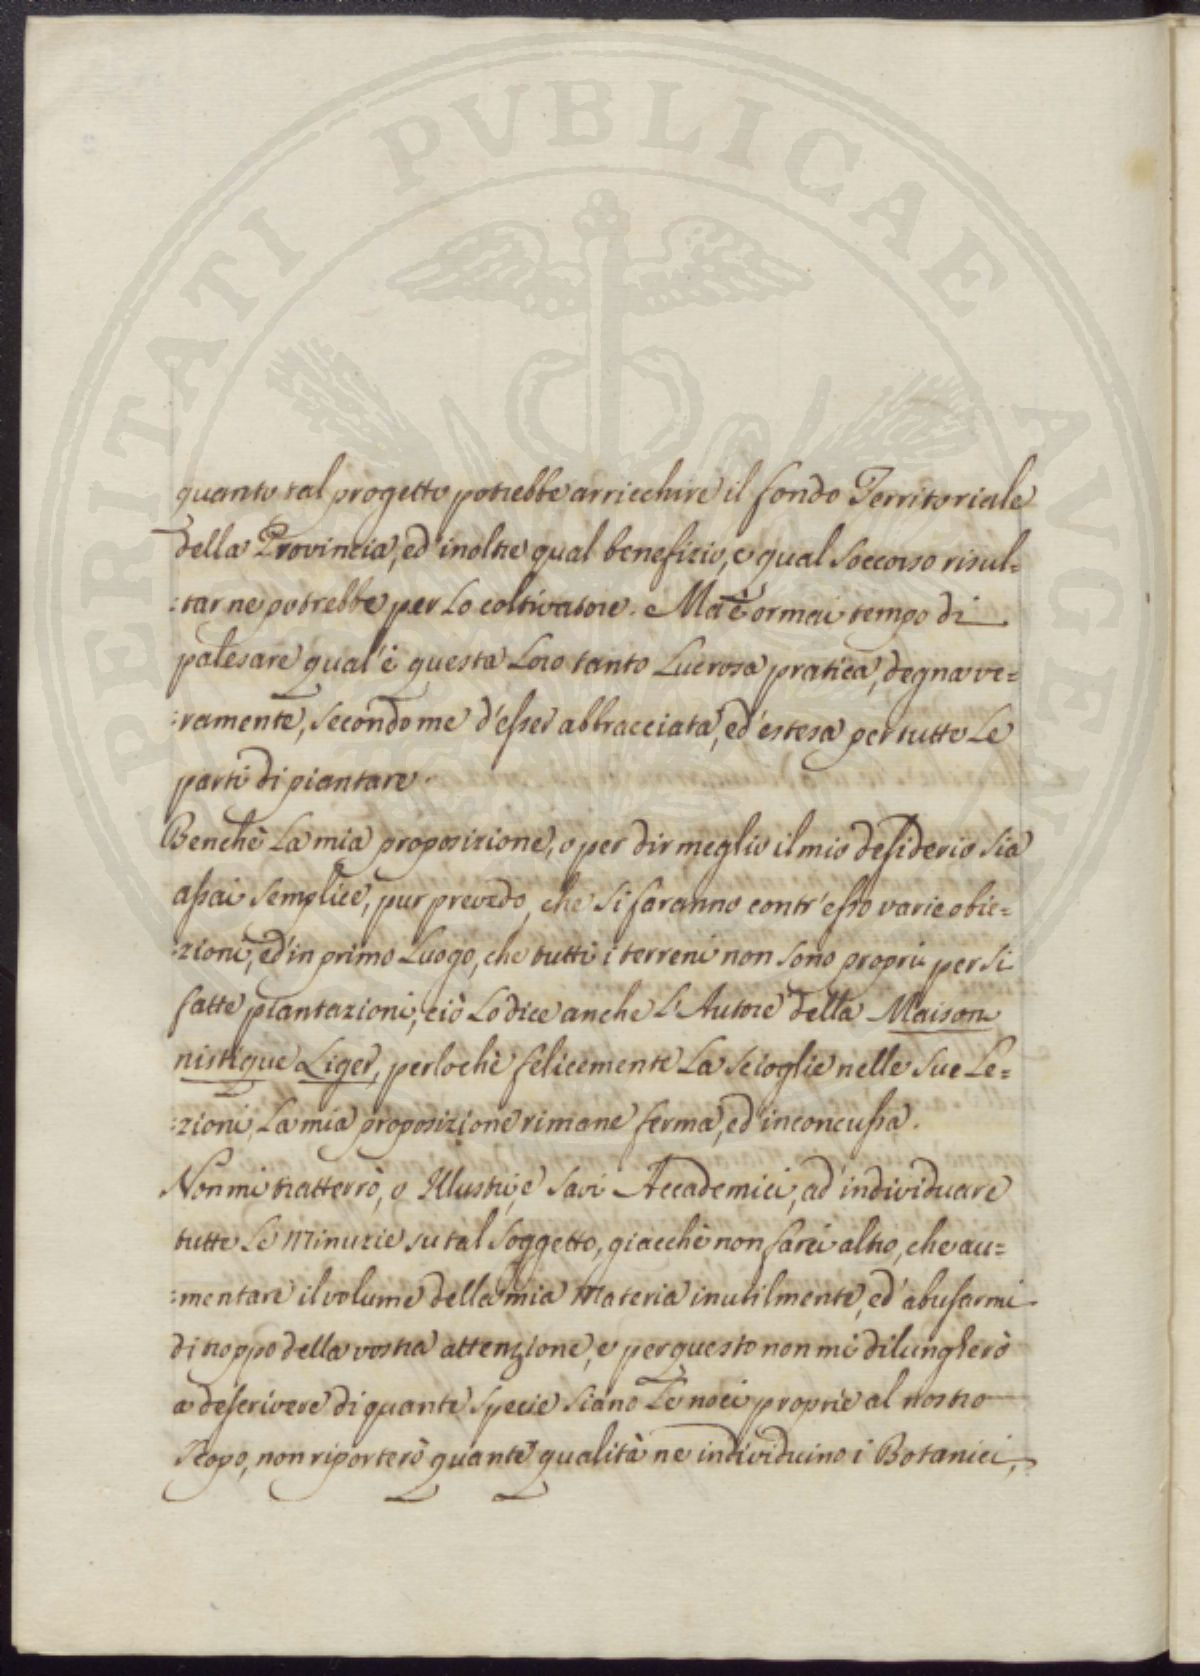 PROSPERITATI PVBLICAE AVGENDAE
quanto tal progetto potrebbe arricchire il fondo Territoriale
della Provincia, ed' inoltre qual benefizio, e qual Soccorso risul=
=tarne potrebbe per Lo coltivatore. Ma è ormai tempo di
palesare qual'è questa Loro tanto Lucrosa pratica, degna ve=
=ramente, Secondo me d'esser abbracciata, ed' estesa per tutte Le
parti di piantare.
Benchè La mia proposizione, o per dir meglio il mio desiderio Sia
assai Semplice, pur prevedo, che Si faranno contr'esso varie obie=
=zioni, ed' in primo Luogo, che tutti i terreni non Sono proprii per Si
fatte piantazioni, ciò Lo dice anche L'Autore della Maison
rustique Liger, perlochè felicemente La Scioglie nelle Sue Le=
=zioni, La mia proposizione rimane ferma, ed' inconcussa.
Non mi tratterrò, o Illustri, e Savi Accademici, ad' individuare
tutte Le Minuzie su tal Soggetto, giacchè non farei altro, che au=
=mentare il volume della mia Materia inutilmente, ed' abusarmi
di troppo della vostra attenzione, e per questo non mi dilungherò
a descrivere di quante Specie Siano Le noci proprie al nostro
Scopo, non riporterò quante qualità ne individuino i Botanici,